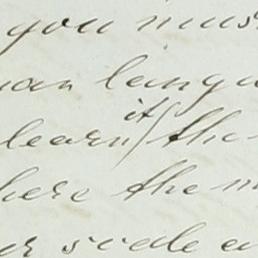 you mus
man langu
learn it the
here the m